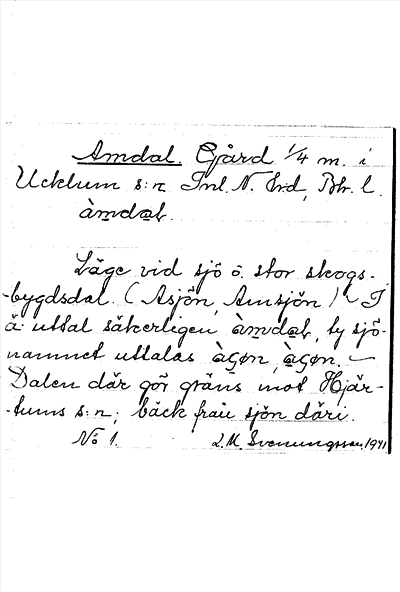 Amdal. Gård 1/4 m. i
Ucklum s:n Inl. N. hrd, Bhr. l.
àmdaḷ.
Läge vid sjö o. stor skogs-
-bygdsdal. (Asjön, Amsjön) - I
ä: uttal säkerligen àmdaḷ, ty sjö-
namnet uttalas àʃøn, àʃøn. -
Dalen där gör gräns mot Hjär-
-tums s:n; bäck från sjön däri.
No 1. L.M. Svenungsson. 1941.